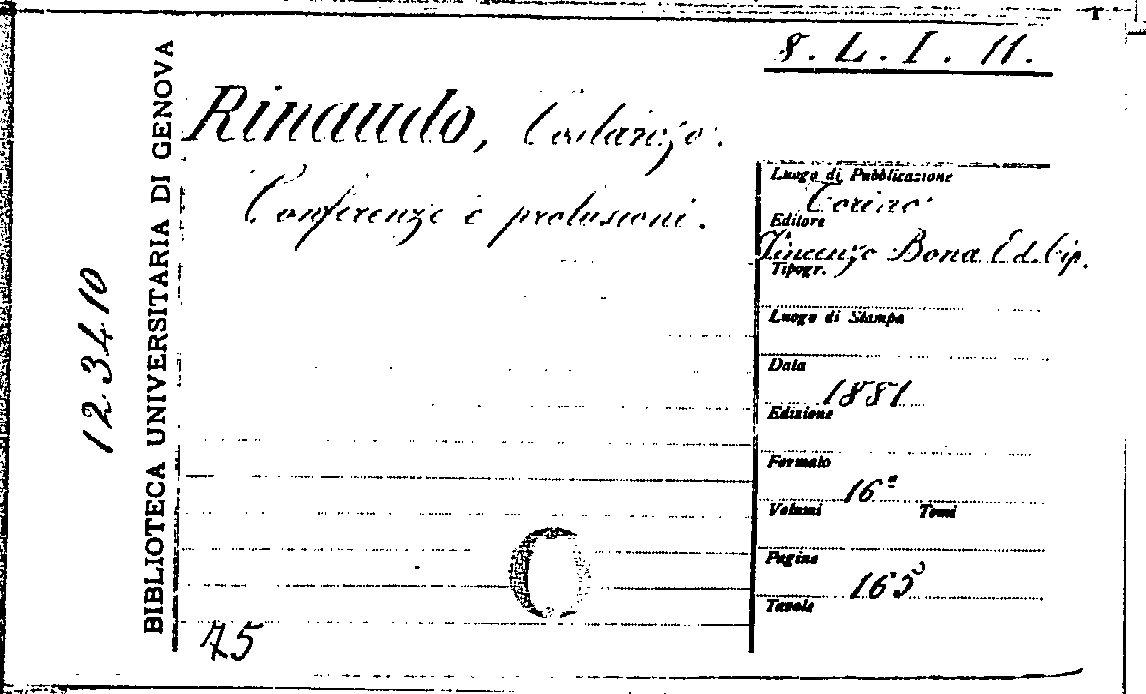 8. L. I. 11.
Rinaudo, Costanzo.
Conferenze e prolusioni.
BIBLIOTECA UNIVERSITARIA DI GENOVA
12.34.10
Luogo di Pubblicazione
Torino
Editore
Vincenzo Bona Ed. tip.
Tipogr.
Luogo di Stampa
Data
1881
Edizione
Formato
16º
Volumi Tomi
Pagine
Tavole
45